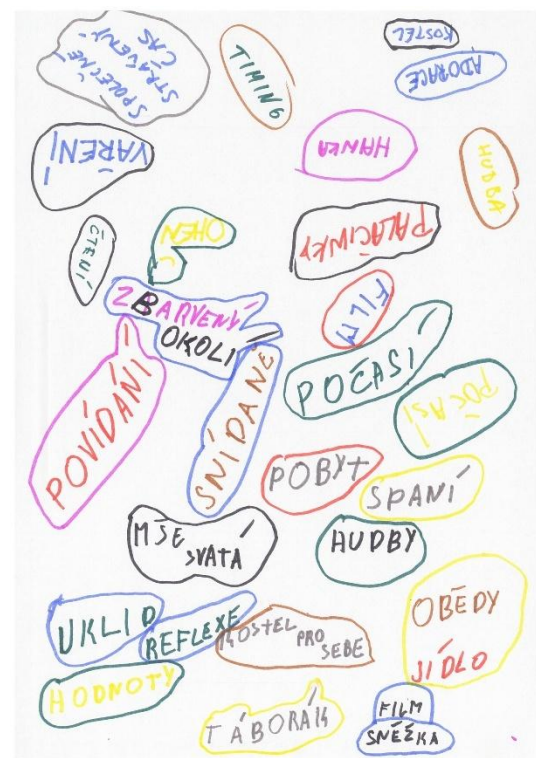 SPOLEČNĚ
STRÁVENÝ
ČAS
TIMING
KOSTEL
ADORACE
VAŘENÍ
HANKA
HUDBA
ČTENÍ
OHEŇ
PALAČINKY
ZBARVENÝ
OKOLÍ
FILM
POČASÍ
POČASÍ
POVÍDÁNÍ
SNÍDANE
POBYT
SPANÍ
MŠE
SVATÁ
HUDBY
UKLID
REFLEXE
KOSTEL
PRO
SEBE
OBĚDY
JÍDLO
HODNOTY
TÁBORÁK
FILM
SNĚŽKA